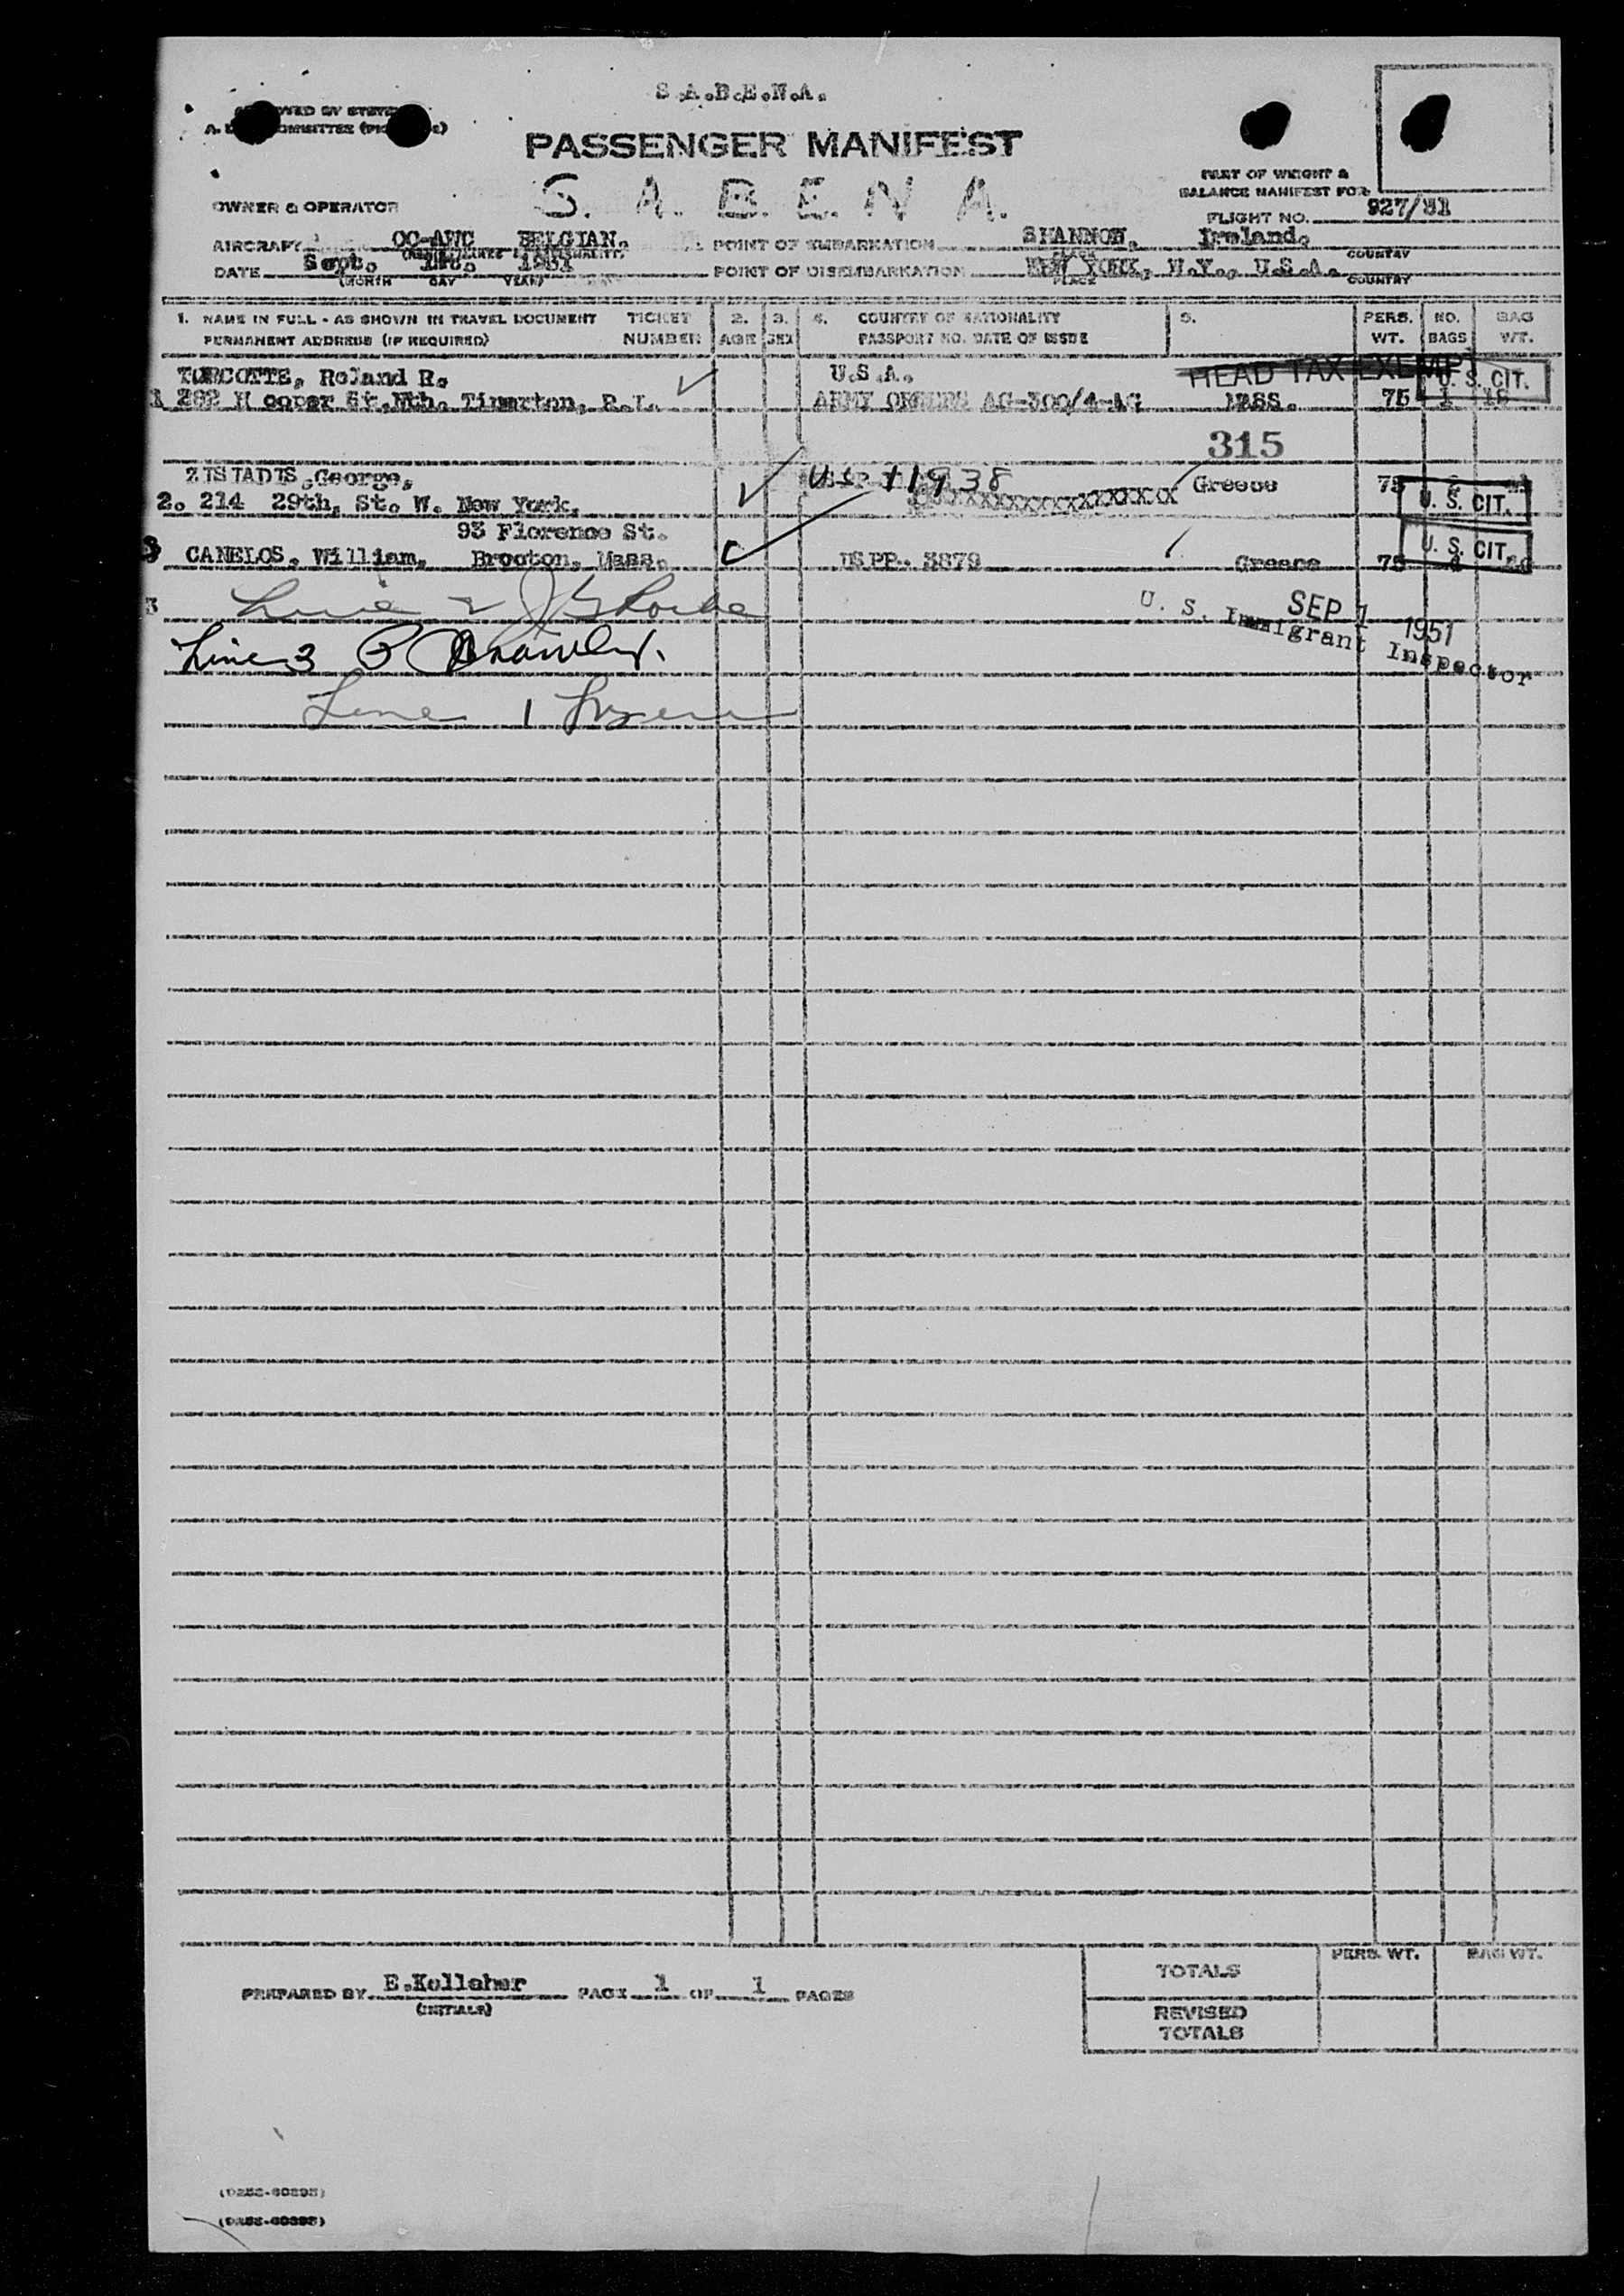 S.A.B.E.N.A.
PASSENGER MANIFEST
S. A. B. E. N A.
PART OF WEIGHT &
BALANCE MANIFEST FOR
OWNER & OPERATOR
FLIGHT NO. 927/31
AIRCRAFT OO-AWC BELGIAN. POINT OF EMBARKATION SHANNON, Ireland.
PLACE COUNTRY
DATE Sept. 1st. 1951 POINT OF DISEMBARKATION NEW YORK, N.Y., U.S.A.
(MONTH DAY YEAR) PLACE COUNTRY
1. NAME IN FULL - AS SHOWN IN TRAVEL DOCUMENT TICKET 2. 3. 4. COUNTRY OF NATIONALITY 5. PERS. NO. BAG
PERMANENT ADDRESS (IF REQUIRED) NUMBER AGE SEX PASSPORT NO. DATE OF ISSUE WT. BAGS WT.
HEAD TAX EXEMPT
TURCOTTE, Roland R. U.S.A. U. S. CIT.
1 282 H ooper St. Nth. Tiverton, R.I. ARMY ORDERS AG-300/4-AG MASS. 75 1 18
315
ZISIADIS, George, 11938 Greece 75
2. 214 29th, St. W. New York. U. S. CIT.
93 Florence St.
3 CANELOS, William, Brocton, Mass. USPP. 3879 Greece 75 U. S. CIT.
Line 2
SEP 1 1951
U. S. Immigrant Inspector
Line 3
Line 1
PREPARED BY E.Kelleher PAGE 1 OF 1 PAGES
(INITIALS)
PERS. WT. BAG WT.
TOTALS
REVISED
TOTALS